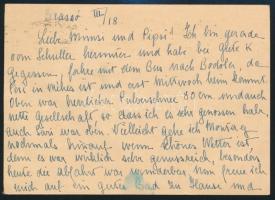 Brassó III/18
Liebe Mimi und Pepsi! Ich bin gerade
vom Schuller herunter und habe bei Grete K
gegessen, fahre mit dem Bus nach Bodola, da
Pori in ist und erst Mittwoch heim kommt
Oben war herrlicher Pulverschnee 30 cm und auch
nette Gesellschaft so dass ich es sehr genossen habe,
auch Lori war oben. Vielleicht gehe ich Montag
nochmals hinauf wenn schönes Wetter ist,
denn es war wirklich sehr genussreich, besonders
heute die Abfahrt war wunderbar. Nun freue ich
mich auf ein gutes Bad zu Hause und